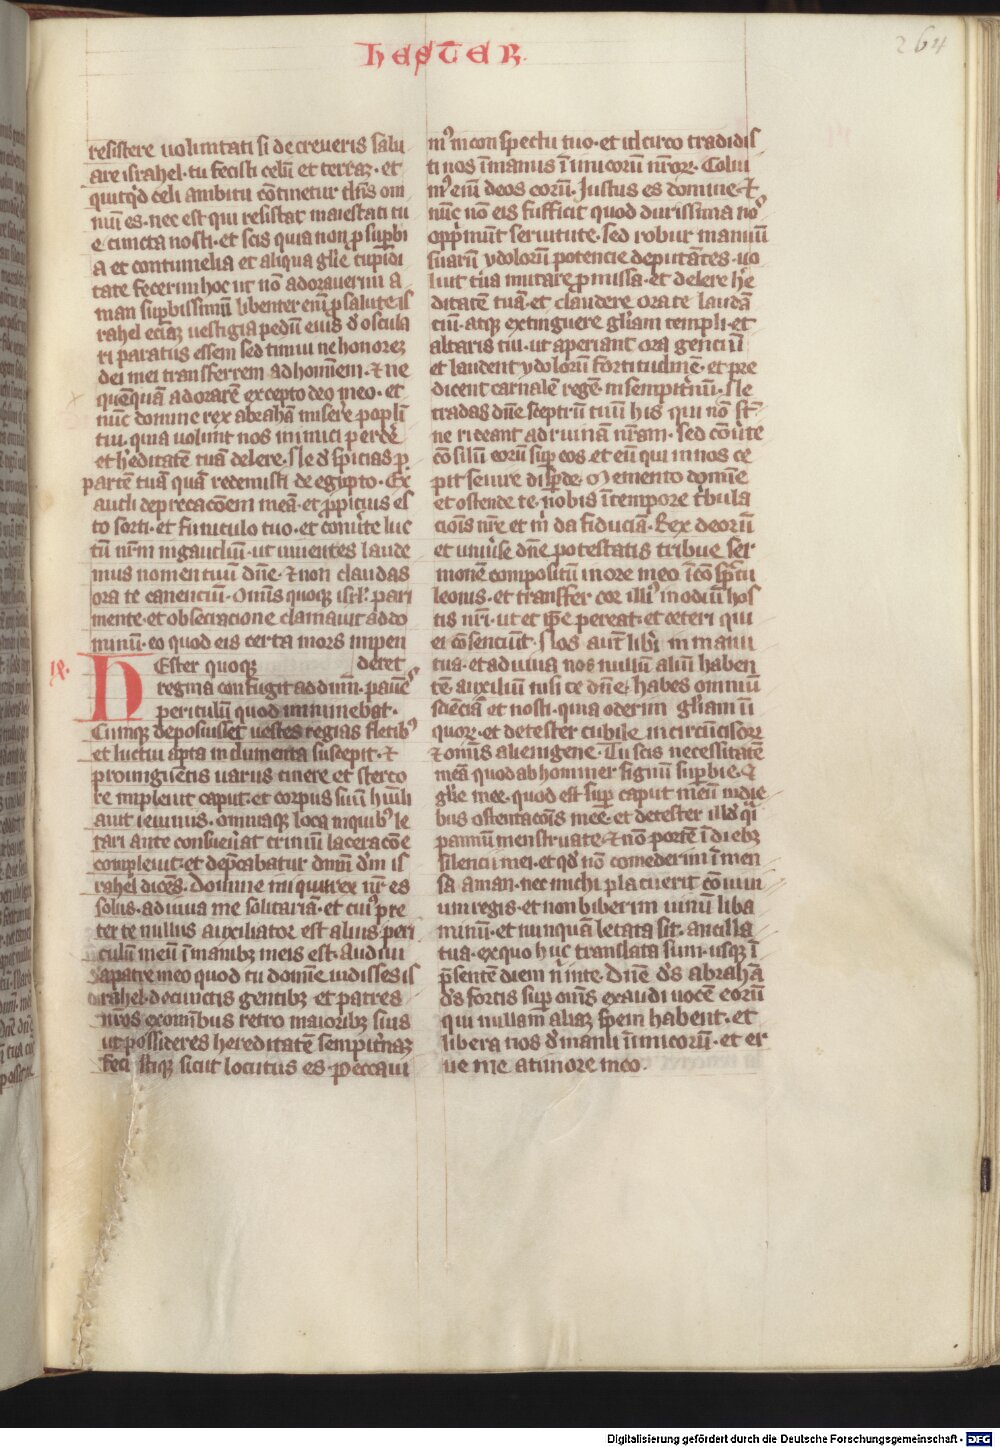 hester
264
resistere uoluntati si decreueris salu
are israhel· tu fecisti celū et terraz· et
quitq̇d celi ambitu cōtinetur dn̄s om
niū es· nec est qui resistat maiestati tu
e cuncta nosti· et scis quia non ꝓ supbi
a et contumelia et aliqua glīe cupidi
tate fecerim hoc ut nō adorauerim a
man supbissimū libenter enī ꝓ salute is
rahel eciaꝫ uestigia pedū eius d' oscula
ri paratus essem sed timui ne honorez
dei mei transferrem ad hominem· ⁊ ne
quēquā adorarē excepto deo meo· et
nūc domine rex abrahā misere popl̄i
tui· quia uolunt nos inimici perdē
et h'editatē tuā delere· Ne d'spicias ꝑ
partē tuā quā redemisti de egipto· Ex
audi deprecacōem meā· et ꝓpicius es
to sorti· et funiculo tuo· et conu'te luc
tū nr̄m in gaudiū· ut uiuentes laude
mus nomen tuū dn̄e· ⁊ non claudas
ora te canenciū· Omīs quoqꝫ isrl̄· pari
mente et obsecracione clamauit ad do
minū· eo quod eis certa mors inpen
deret
ix·
HEster quoqꝫ
regina confugit ad dn̄m· pauē
periculū quod inminebat·
Cumqꝫ deposuisset uestes regias fletibꝰ
et luctui apta indumenta suscepit· ⁊
pro unguētis uariis cinere et sterco
re impleuit caput· et corpus suū hūili
auit ieiuniis· omniaqꝫ loca in quibꝰ le
tari ante consueu'at crinium laceracōe
compleuit· et dep̄cabatur dn̄m d'm is
rahel dicēs· Domine mi qui rex nr̄ es
solus· adiuua me solitariā· et cuiꝰ pre
ter te nullus auxiliator est alius peri
culū meū ī manibꝫ meis est· Audiui
a patre meo quod tu domīe tulisses is
rahel· de cunctis gentibꝫ et patres
nr̄os ex omībus retro maioribꝫ suis
ut possideres hereditatē sempit'naꝫ
fecistiqꝫ sicut locutus es· peccaui
mꝰ in conspectu tuo· et idcirco tradidis
ti nos ī manus īimicorū nr̄orꝫ· Colui
mꝰ enī deos eorū· Justus es domine· ⁊
nūc nō eis sufficit quod durissima noꝰ
opp̄mūt seruitute· sed robur manuū
suarū ydolorū potencie deputātes· uo
lūt tua mutare ꝓmissa· et delere h'e
ditatē tuā· et claudere ora te laudā
tiū· atqꝫ extinguere gl̄iam templi· et
altaris tui· ut aperiant ora genciū
et laudent ydolorū fortitudinē· et pre
dicent carnalē regē· in sempit'nū· Ne
tradas dn̄e sceptrū tuū his qui nō st̄
ne rideant ad ruinā nr̄am· sed cōu'te
cōsiliū eorū sup eos et eū qui in nos ce
pit seuire disp'de· Memento domīe
et ostende te· nobis ī tempore t'bula
cionis nr̄e et m̄ da fiduciā· Rex deorū
et uniu'se dn̄e potestatis tribue ser
monē compositū in ore meo· ī cōsp̄ctu
leonis· et transfer cor illiꝰ in odiū hos
tis nr̄i· ut et ip̄e pereat· et ceteri qui
ei cōsenciūt· Nos aut̄ lib'a in manu
tua· et adiuua nos nullū aliū haben
tē auxiliū nisi te dn̄e· habes omniū
sciēciā· et nosti· quia oderim gl̄iam iī
quorꝫ· et detester cubile incircūcisorꝫ
⁊ omīs alienigene· Tu scis necessitatē
meā quod abhominer signū supbie· ⁊
gl̄ie mee· quod est sup caput meū in die
bus ostentacōīs mee· et detester illd' qi
pannū menstruate· ⁊ nō portē ī diebꝫ
silencii mei· et qd' nō comederim ī men
sa aman· nec michi placuerit cōuiui
um regis· et non biberim uinū liba
minū· et nunquā letata sit· ancilla
tua· ex quo huc translata sum· usqꝫ ī
p̄sentē diem ni' in te· Dn̄e d's abrahā
d's fortis sup omīs exaudi uocē eorū
qui nullam aliaꝫ spem habent· et
libera nos d' manu īimicorū· et er
ue me a timore meo·
Digitalisierung gefördert durch die Deutsche Forschungsgemeinschaft - DFG